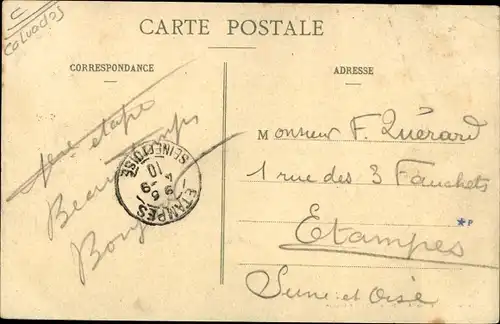 C
Calvados
CARTE POSTALE
CORRESPONDANCE
ADRESSE
1ère étape
Beau temps
Bonj
ETAMPES
SEINE ET OISE
10
Monsieur F. Quérard
1 rue des 3 Fauchets
Etampes
*P
Seine et Oise